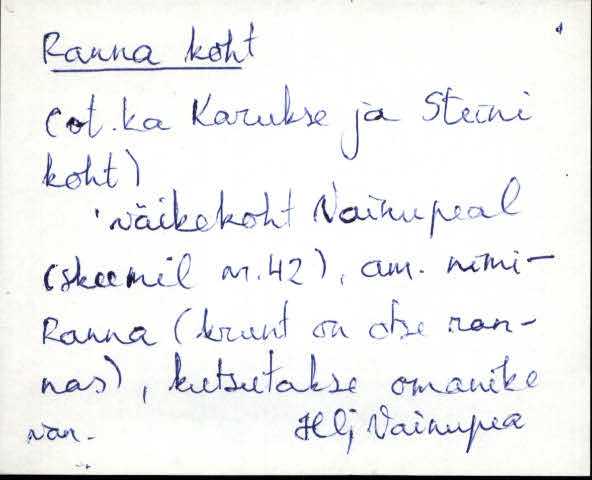 Ranna koht
(vt. ka Karukse ja Steini
koht)
väikekoht Vainupeal
(skeemil nr. 42), am. nimi-
Ranna (krunt on otse ran-
nas), kutsutakse omanike
van.
Hlj Vainupea